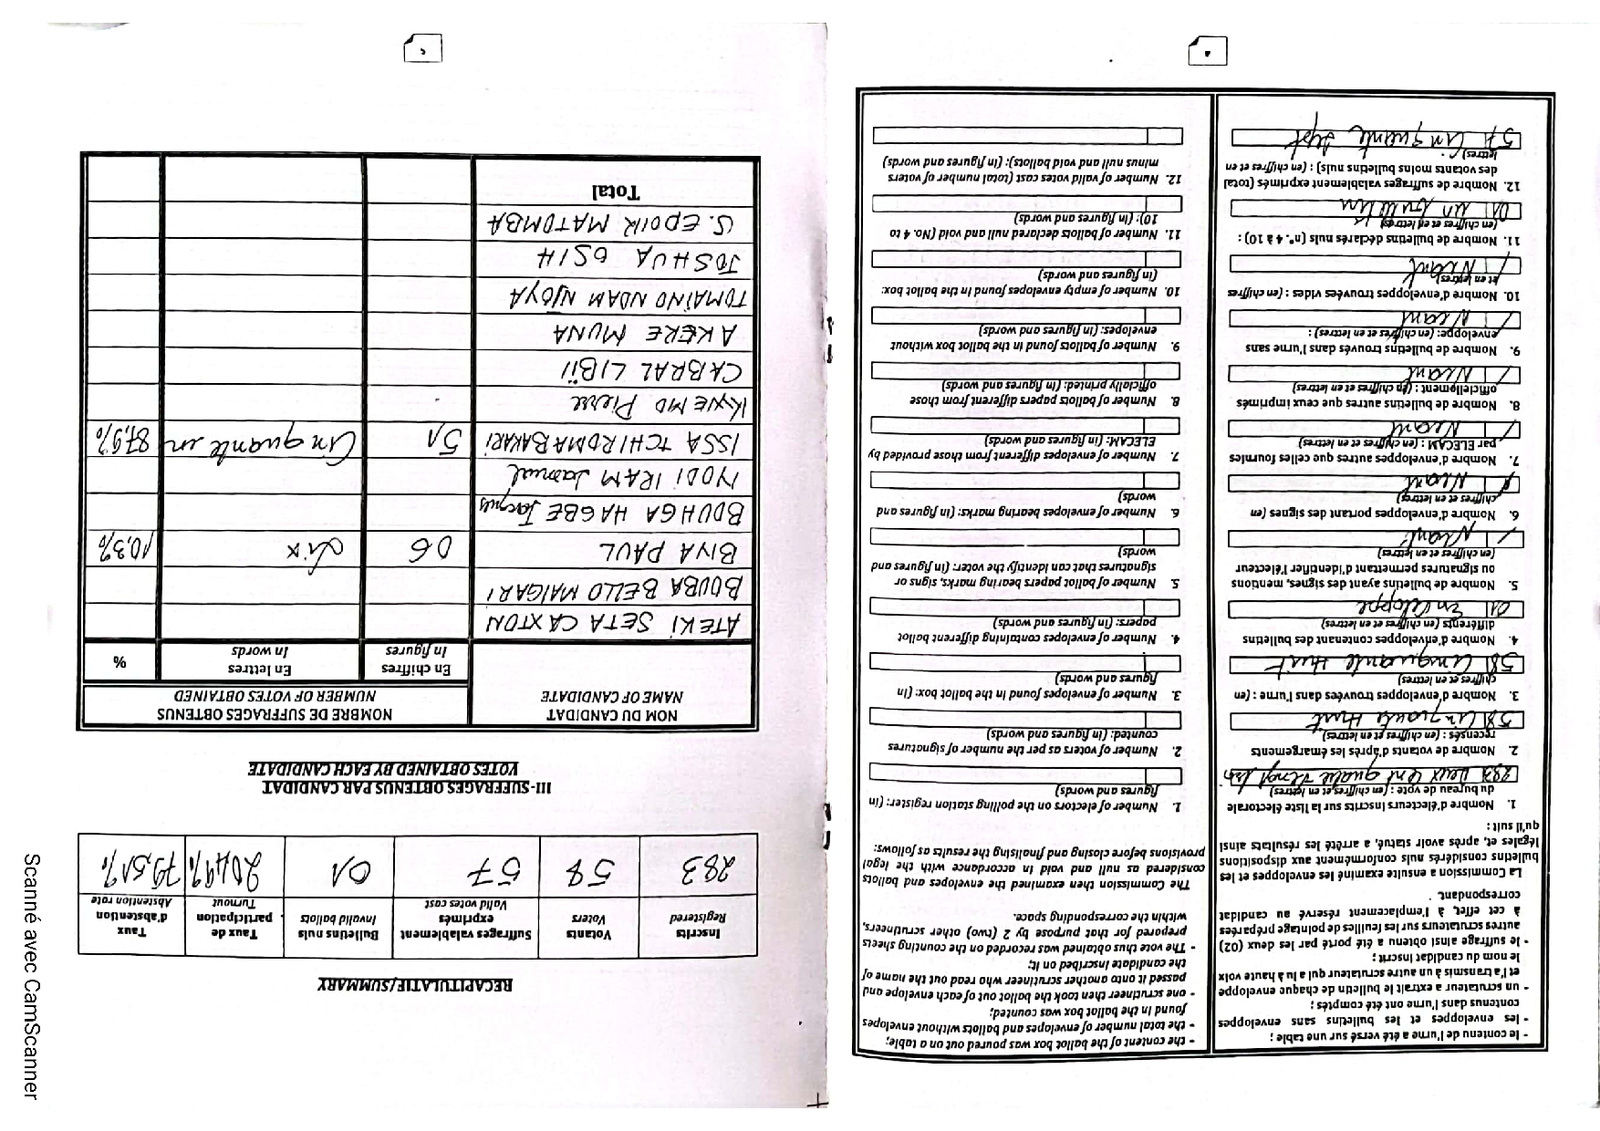 - le contenu de l'urne a été versé sur une table ;
- les enveloppes et les bulletins sans enveloppes
contenus dans l'urne ont été comptés ;
- un scrutateur a extrait le bulletin de chaque enveloppe
et l'a transmis à un autre scrutateur qui a lu à haute voix
le nom du candidat inscrit ;
- le suffrage ainsi obtenu a été porté par les deux (02)
autres scrutateurs sur les feuilles de pointage préparées
à cet effet, à l'emplacement réservé au candidat
correspondant.
La Commission a ensuite examiné les enveloppes et les
bulletins considérés nuls conformément aux dispositions
légales et, après avoir statué, a arrêté les résultats ainsi
qu'il suit :
1. Nombre d'électeurs inscrits sur la liste électorale
du bureau de vote : (en chiffres et en lettres)
283 Deux cent quatre vingt
2. Nombre de votants d'après les émargements
recensés : (en chiffres et en lettres)
58 Cinquante Huit
3. Nombre d'enveloppes trouvées dans l'urne : (en
chiffres et en lettres)
58 Cinquante Huit
4. Nombre d'enveloppes contenant des bulletins
différents (en chiffres et en lettres)
01 Enveloppe
5. Nombre de bulletins ayant des signes, mentions
ou signatures permettant d'identifier l'électeur
(en chiffres et en lettres)
/ Néant
6. Nombre d'enveloppes portant des signes (en
chiffres et en lettres)
/ Néant
7. Nombre d'enveloppes autres que celles fournies
par ELECAM : (en chiffres et en lettres)
/ Néant
8. Nombre de bulletins autres que ceux imprimés
officiellement : (en chiffres et en lettres)
/ Néant
9. Nombre de bulletins trouvés dans l'urne sans
enveloppe: (en chiffres et en lettres) :
/ Néant
10. Nombre d'enveloppes trouvées vides : (en chiffres
et en lettres)
/ Néant
11. Nombre de bulletins déclarés nuls (n°. 4 à 10) :
(en chiffres et en lettres)
01 un bulletin
12. Nombre de suffrages valablement exprimés (total
des votants moins bulletins nuls) : (en chiffres et en
lettres)
57 Cinquante sept
- the content of the ballot box was poured out on a table;
- the total number of envelopes and ballots without envelopes
found in the ballot box was counted;
- one scrutineer then took the ballot out of each envelope and
passed it onto another scrutineer who read out the name of
the candidate inscribed on it;
- The vote thus obtained was recorded on the counting sheets
prepared for that purpose by 2 (two) other scrutineers,
within the corresponding space.
The Commission then examined the envelopes and ballots
considered as null and void in accordance with the legal
provisions before closing and finalising the results as follows:
1. Number of electors on the polling station register: (in
figures and words)
2. Number of voters as per the number of signatures
counted: (in figures and words)
3. Number of envelopes found in the ballot box: (in
figures and words)
4. Number of envelopes containing different ballot
papers: (in figures and words)
5. Number of ballot papers bearing marks, signs or
signatures that can identify the voter: (in figures and
words)
6. Number of envelopes bearing marks: (in figures and
words)
7. Number of envelopes different from those provided by
ELECAM: (in figures and words)
8. Number of ballots papers different from those
officially printed: (in figures and words)
9. Number of ballots found in the ballot box without
envelopes: (in figures and words)
10. Number of empty envelopes found in the ballot box:
(in figures and words)
11. Number of ballots declared null and void (No. 4 to
10): (in figures and words)
12. Number of valid votes cast (total number of voters
minus null and void ballots): (in figures and words)
RECAPITULATIF/SUMMARY
Inscrits Registered | Votants Voters | Suffrages valablement exprimés Valid votes cast | Bulletins nuls Invalid ballots | Taux de participation Turnout | Taux d'abstention Abstention rate
283 | 58 | 57 | 01 | 20,49% | 79,51%
III-SUFFRAGES OBTENUS PAR CANDIDAT
VOTES OBTAINED BY EACH CANDIDATE
NOM DU CANDIDAT NAME OF CANDIDATE | NOMBRE DE SUFFRAGES OBTENUS NUMBER OF VOTES OBTAINED
En chiffres In figures | En lettres In words | %
ATEKI SETA CAXTON
BOUBA BELLO MAIGARI
BIYA PAUL | 06 | Six | 10,3%
BOUHGA HAGBE Jacques
IYODI IRAM Samuel
ISSA TCHIROMA BAKARI | 51 | Cinquante un | 87,9%
KWEMO Pierre
CABRAL LIBII
AKERE MUNA
TOMAINO NDAM NJOYA
JOSHUA OSIH
S. EPOIR MATOMBA
Total
Scanné avec CamScanner